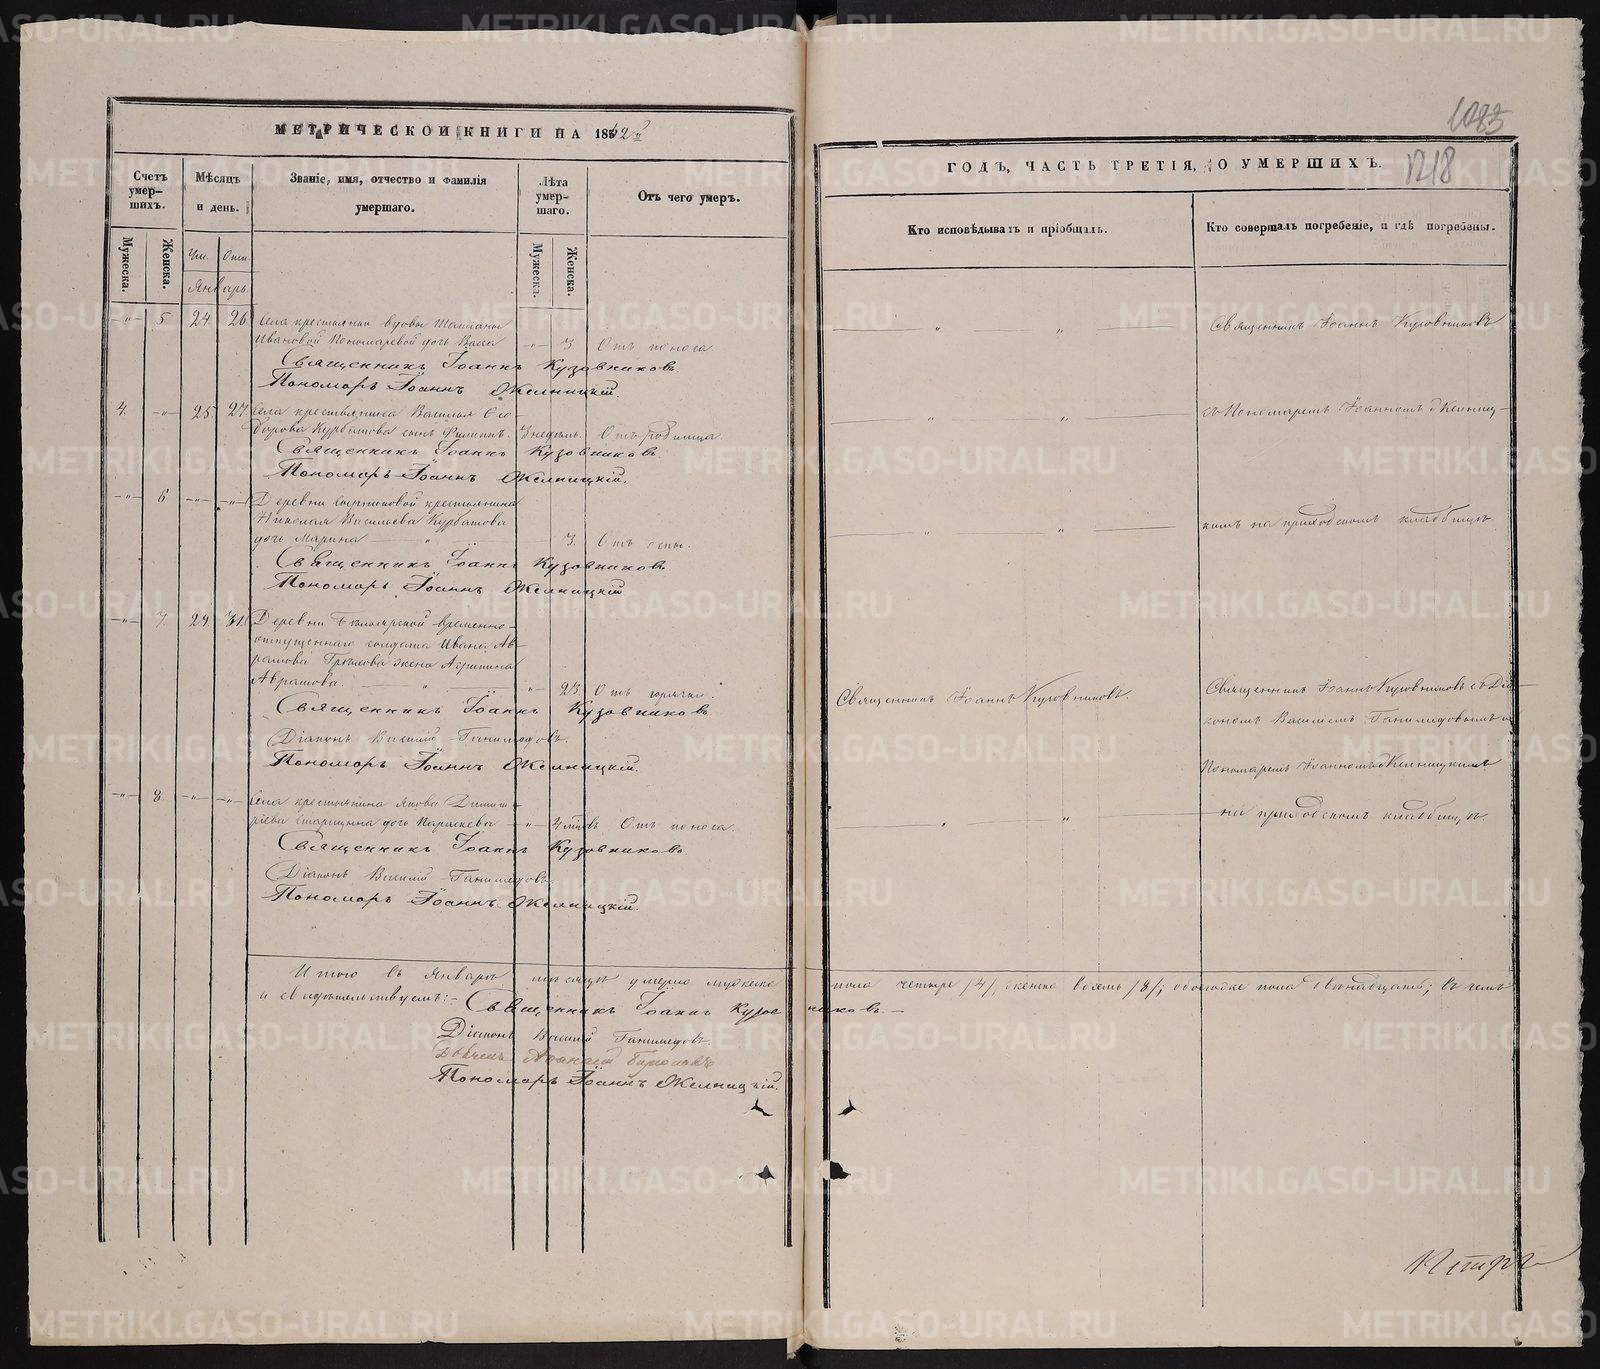 МЕТРИЧЕСКОЙ КНИГИ НА 1862й
Счетъ умер-шихъ.
Мѣсяцъ и день.
Званіе, имя, отчество и фамилія умершаго.
Лѣта умер-шаго.
Отъ чего умеръ.
Мужеска.
Женска.
Чи.
Отп.
Мужеска.
Женска.
Январь.
5 24 26 Села крестьянки вдовы
Ивановой Пономаревой дочь 3 Отъ поноса
Священникъ Іоаннъ Кузовниковъ
Пономарь Іоаннъ Желницкій.
4. 25 27 Села крестьянина Василья Ѳео-
дорова Курбатова сынъ Филиппъ. 3 недѣль. Отъ родимца.
Священникъ Іоаннъ Кузовниковъ.
Пономарь Іоаннъ Желницкій.
6 Деревни крестьянина
Николая Васильева Курбатова
дочь Марина 3. Отъ оспы.
Священникъ Іоаннъ Кузовниковъ
Пономарь Іоаннъ Желницкій
7. 29. 31. Деревни Белоярской временно-
отпущеннаго солдата Ивана Ав-
рамова жена Агрипина
Аврамова. 23. Отъ горячки.
Священникъ Іоаннъ Кузовниковъ
Діаконъ Василій Ганимедовъ.
Пономарь Іоаннъ Желницкій.
8. Села крестьянина Якова Димит-
ріева дочь Параскева Отъ поноса.
Священникъ Іоаннъ Кузовниковъ
Діаконъ Василій Ганимедовъ
Пономарь Іоаннъ Желницкій.
Итого въ Январѣ мѣсяцѣ умерло мужеска
и свидѣтельствуемъ:- Священникъ Іоаннъ Кузов никовъ.-
Діаконъ Василій Ганимедовъ.
Дьячекъ
Пономарь Іоаннъ Желницкій.
1083
1218
ГОДЪ, ЧАСТЬ ТРЕТІЯ, О УМЕРШИХЪ.
Кто исповѣдывалъ и пріобщалъ.
Кто совершалъ погребеніе, и гдѣ погребены.
Священникъ Іоаннъ Кузовниковъ
съ Пономаремъ Іоанномъ Желниц-
кимъ на приходскомъ кладбищѣ.
Священникъ Іоаннъ Кузовниковъ.
Священникъ Іоаннъ Кузовниковъ съ Діа-
кономъ Василіемъ Ганимедовымъ и
Пономаремъ Іоанномъ Желницкимъ
на приходскомъ кладбищѣ.
пола четыре /4/, женска восемь /8/; обоегоже пола двѣнадцать; въ чемъ
METRIKI.GASO-URAL.RU